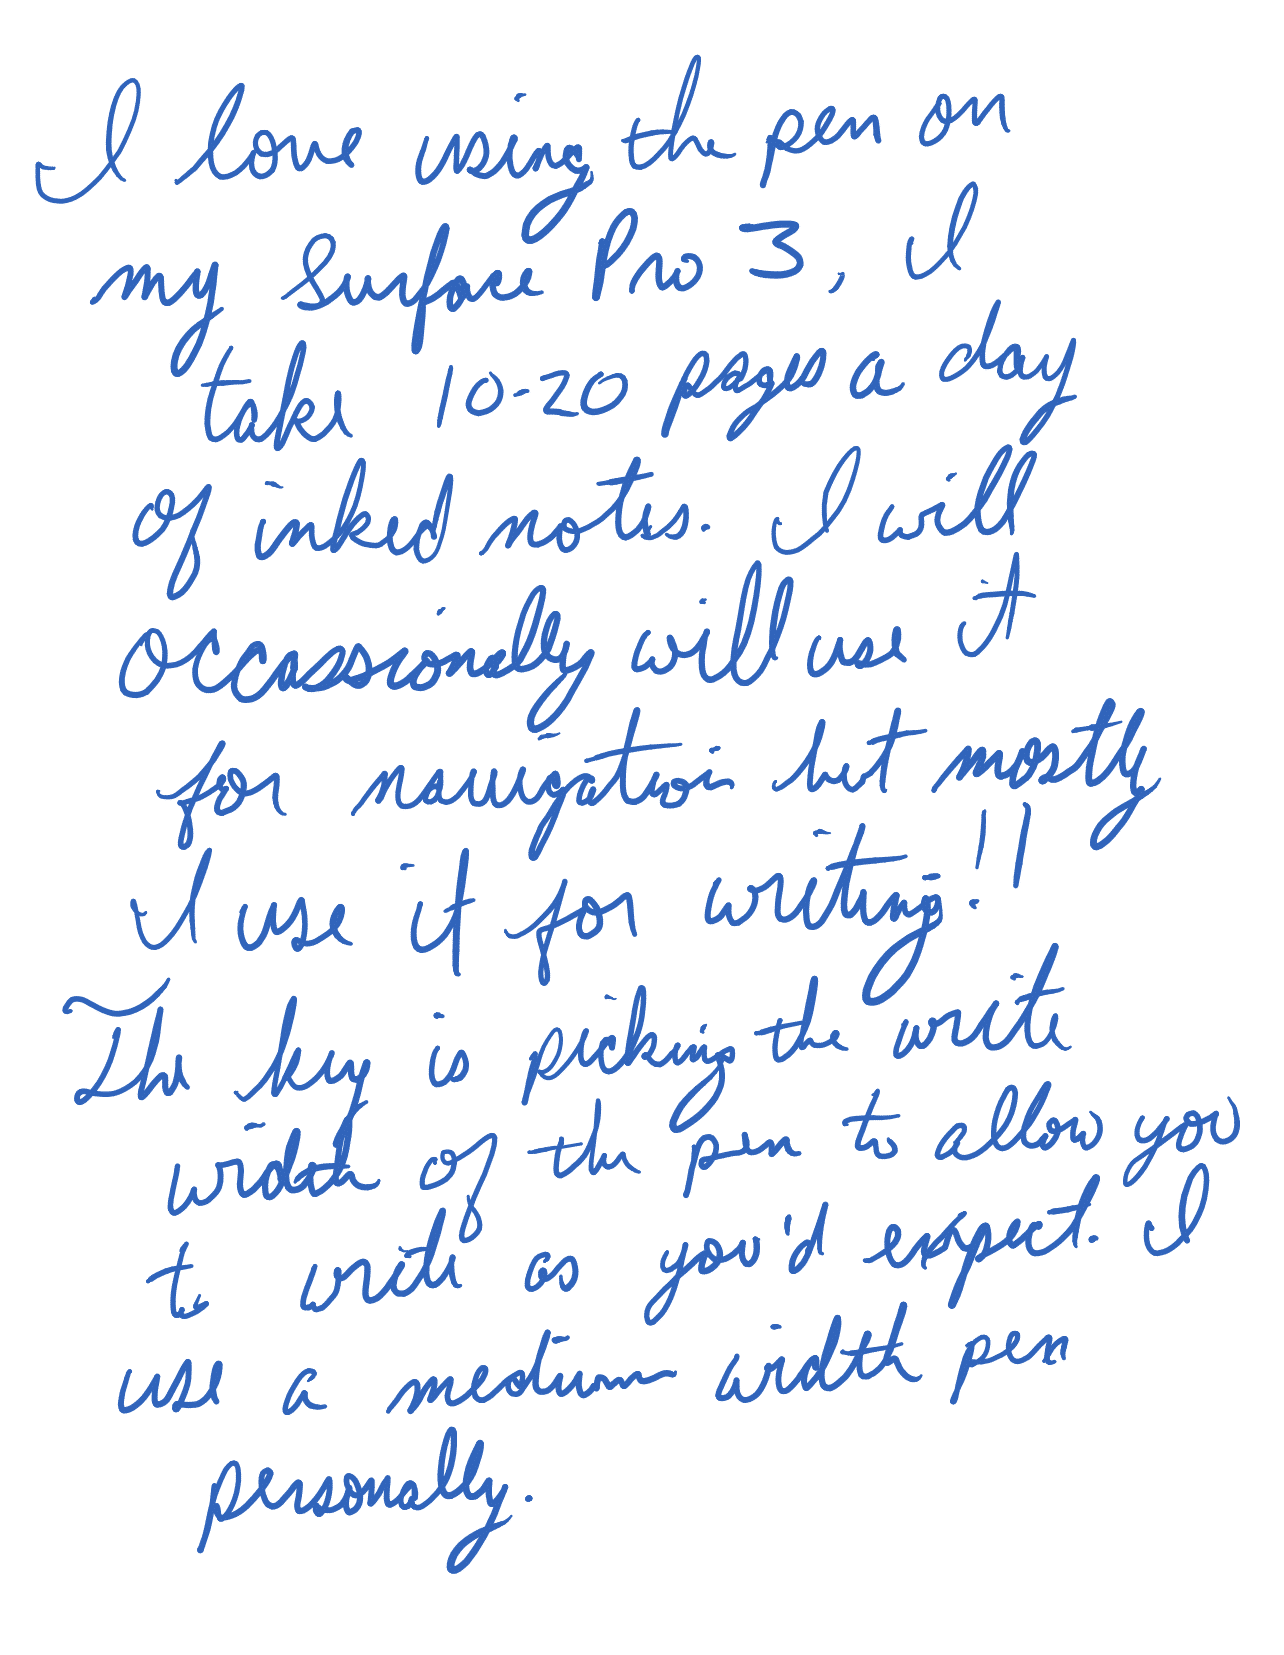 I love using the pen on
my Surface Pro 3, I
take 10-20 pages a day
of inked notes. I will
occassionally will use it
for navigation but mostly
I use it for writing!!
The key is picking the write
width of the pen to allow you
to write as you'd expect. I
use a medium width pen
personally.